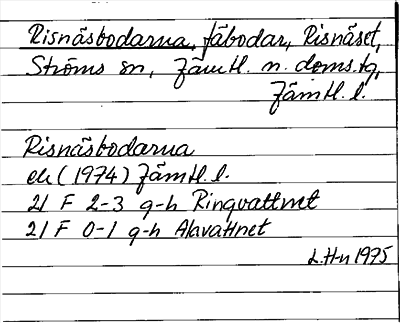 Risnäsbodarna, fäbodar, Risnäset,
Ströms sn, Jämtl. n. doms.tg,
Jämtl. l.
Risnäsbodarna
ek (1974) Jämtl. l.
21 F 2-3 g-h Ringvattnet
21 F 0-1 g-h Alavattnet
L.H-n 1975